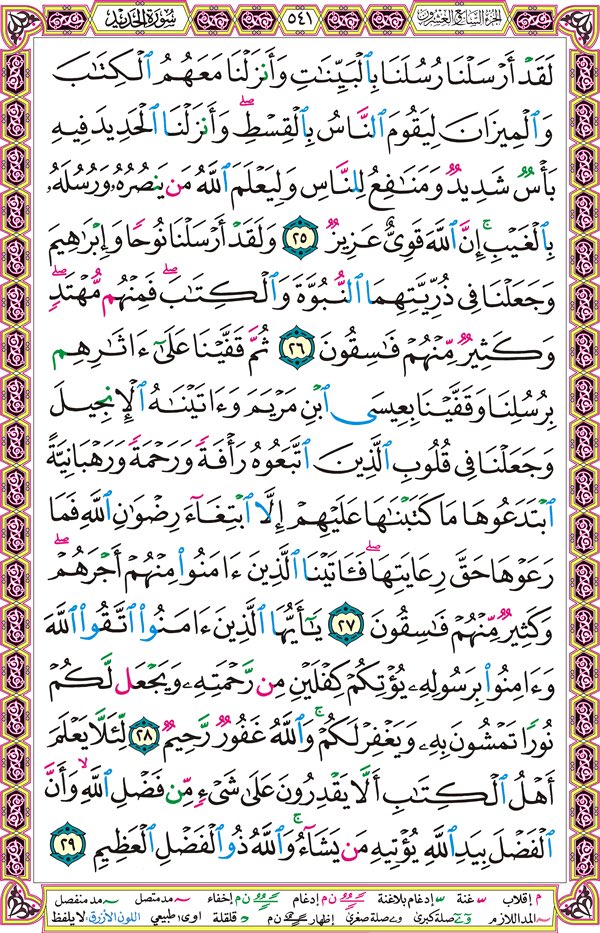 الجزء السابع والعشرون ٥٤١ سورة الحديد
لَقَدْ أَرْسَلْنَا رُسُلَنَا بِٱلْبَيِّنَٰتِ وَأَنزَلْنَا مَعَهُمُ ٱلْكِتَٰبَ
وَٱلْمِيزَانَ لِيَقُومَ ٱلنَّاسُ بِٱلْقِسْطِۖ وَأَنزَلْنَا ٱلْحَدِيدَ فِيهِ
بَأْسٌ شَدِيدٌ وَمَنَٰفِعُ لِلنَّاسِ وَلِيَعْلَمَ ٱللَّهُ مَن يَنصُرُهُۥ وَرُسُلَهُۥ
بِٱلْغَيْبِۚ إِنَّ ٱللَّهَ قَوِىٌّ عَزِيزٌ ٢٥ وَلَقَدْ أَرْسَلْنَا نُوحًا وَإِبْرَٰهِيمَ
وَجَعَلْنَا فِى ذُرِّيَّتِهِمَا ٱلنُّبُوَّةَ وَٱلْكِتَٰبَۖ فَمِنْهُم مُّهْتَدٍۖ
وَكَثِيرٌ مِّنْهُمْ فَٰسِقُونَ ٢٦ ثُمَّ قَفَّيْنَا عَلَىٰٓ ءَاثَٰرِهِم
بِرُسُلِنَا وَقَفَّيْنَا بِعِيسَى ٱبْنِ مَرْيَمَ وَءَاتَيْنَٰهُ ٱلْإِنجِيلَ
وَجَعَلْنَا فِى قُلُوبِ ٱلَّذِينَ ٱتَّبَعُوهُ رَأْفَةً وَرَحْمَةً وَرَهْبَانِيَّةً
ٱبْتَدَعُوهَا مَا كَتَبْنَٰهَا عَلَيْهِمْ إِلَّا ٱبْتِغَآءَ رِضْوَٰنِ ٱللَّهِ فَمَا
رَعَوْهَا حَقَّ رِعَايَتِهَاۖ فَـَٔاتَيْنَا ٱلَّذِينَ ءَامَنُوا۟ مِنْهُمْ أَجْرَهُمْۖ
وَكَثِيرٌ مِّنْهُمْ فَٰسِقُونَ ٢٧ يَٰٓأَيُّهَا ٱلَّذِينَ ءَامَنُوا۟ ٱتَّقُوا۟ ٱللَّهَ
وَءَامِنُوا۟ بِرَسُولِهِۦ يُؤْتِكُمْ كِفْلَيْنِ مِن رَّحْمَتِهِۦ وَيَجْعَل لَّكُمْ
نُورًا تَمْشُونَ بِهِۦ وَيَغْفِرْ لَكُمْۚ وَٱللَّهُ غَفُورٌ رَّحِيمٌ ٢٨ لِّئَلَّا يَعْلَمَ
أَهْلُ ٱلْكِتَٰبِ أَلَّا يَقْدِرُونَ عَلَىٰ شَىْءٍ مِّن فَضْلِ ٱللَّهِۙ وَأَنَّ
ٱلْفَضْلَ بِيَدِ ٱللَّهِ يُؤْتِيهِ مَن يَشَآءُۚ وَٱللَّهُ ذُو ٱلْفَضْلِ ٱلْعَظِيمِ ٢٩
م إقلاب غنة إدغام بلاغنة ن م إدغام ن م إخفاء مد متصل مد منفصل
المد اللازم صلة كبرى صلة صغرى إظهار ن م قلقلة اوى: طبيعي اللون الأزرق: لا يلفظ